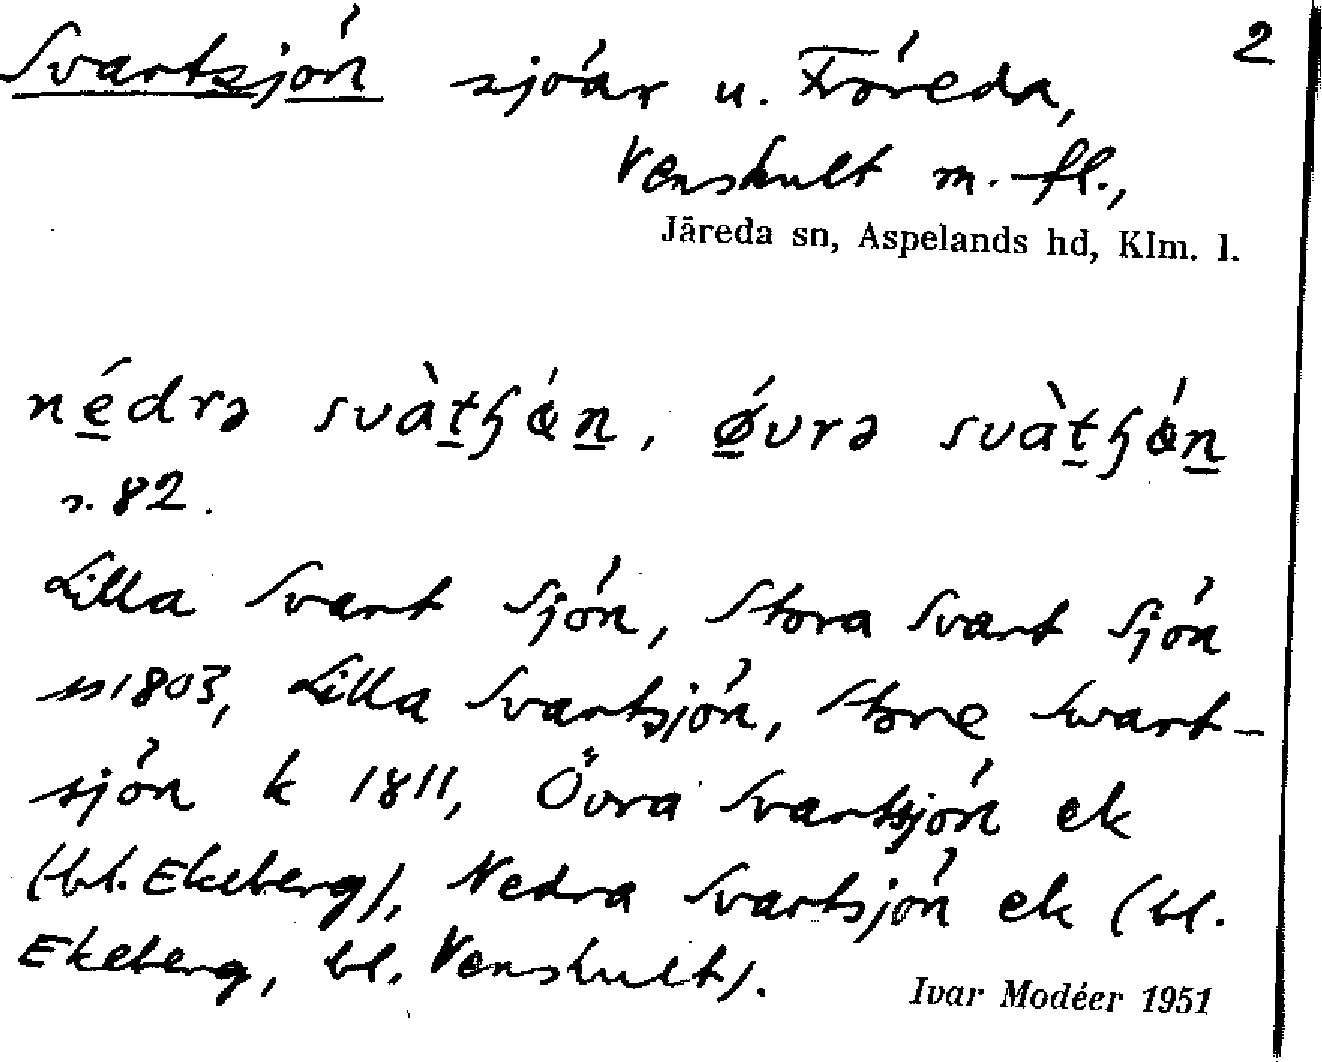 Svartsjön sjöar u. Fröreda, 2
Venshult m. fl.,
Järeda sn, Aspelands hd, Klm. l.
né̱drə svàṯɧǿṉ, ǿ̱vrə svàṯɧǿṉ
s. 82.
Lilla Svart Sjön, Stora Svart Sjön
s 1803, Lilla Svartsjön, Store Swart-
sjön k 1811, Övra Svartsjön ek
(bl. Ekeberg), Nedra Svartsjön ek (bl.
Ekeberg, bl. Venshult).
Ivar Modéer 1951